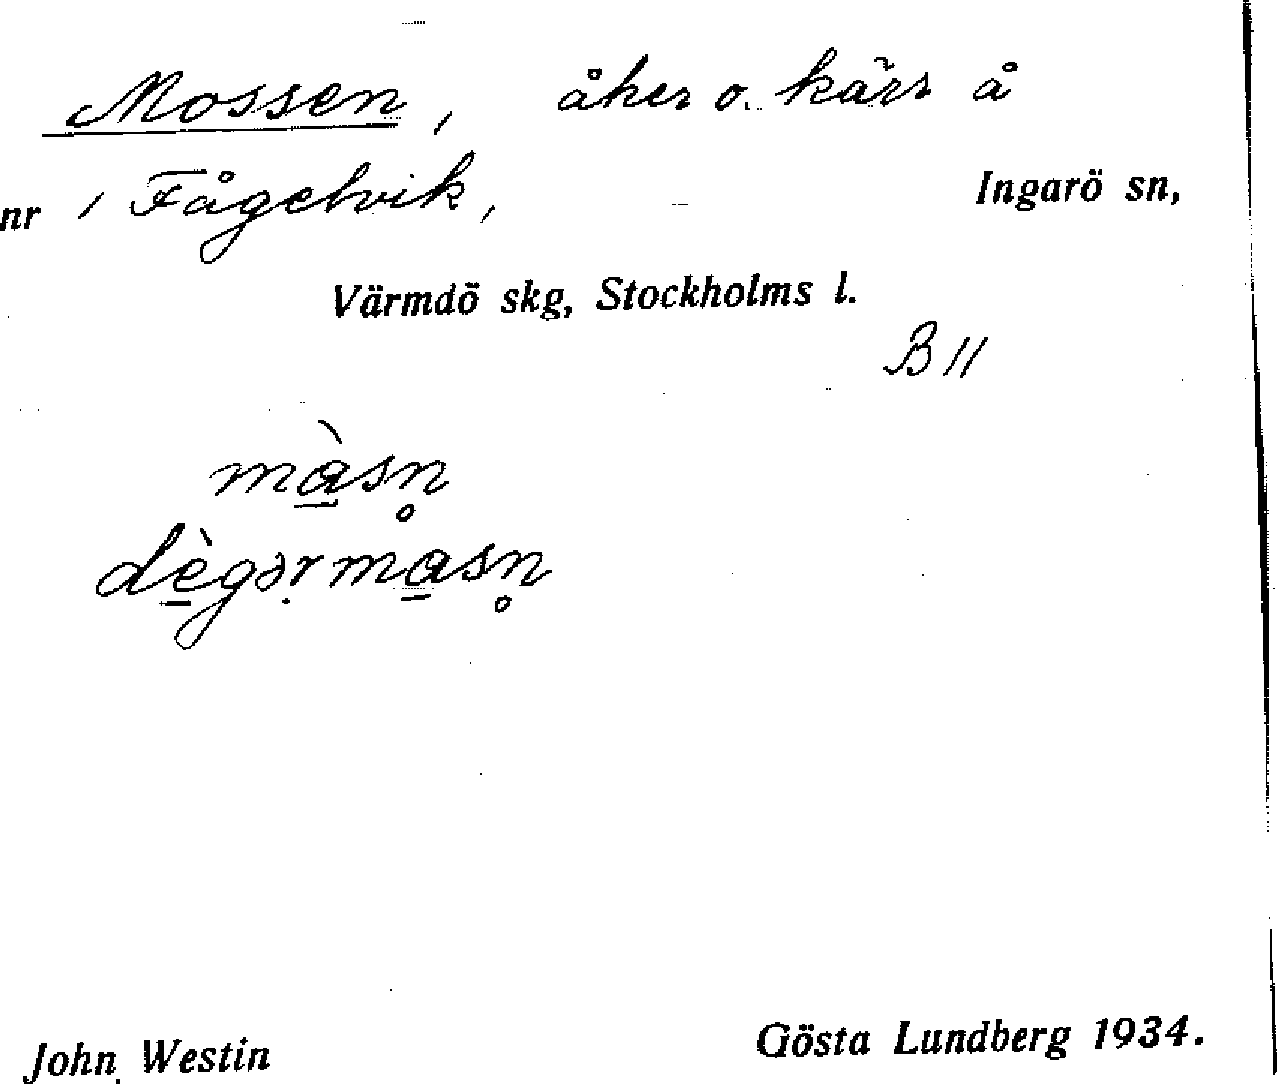 Mossen, åker o. kärr å
nr 1 Fågelvik, Ingarö sn,
Värmdö skg, Stockholms l.
B 11
mà̱sn̥
dè̱gəṛma̱sn̥
John Westin Gösta Lundberg 1934.